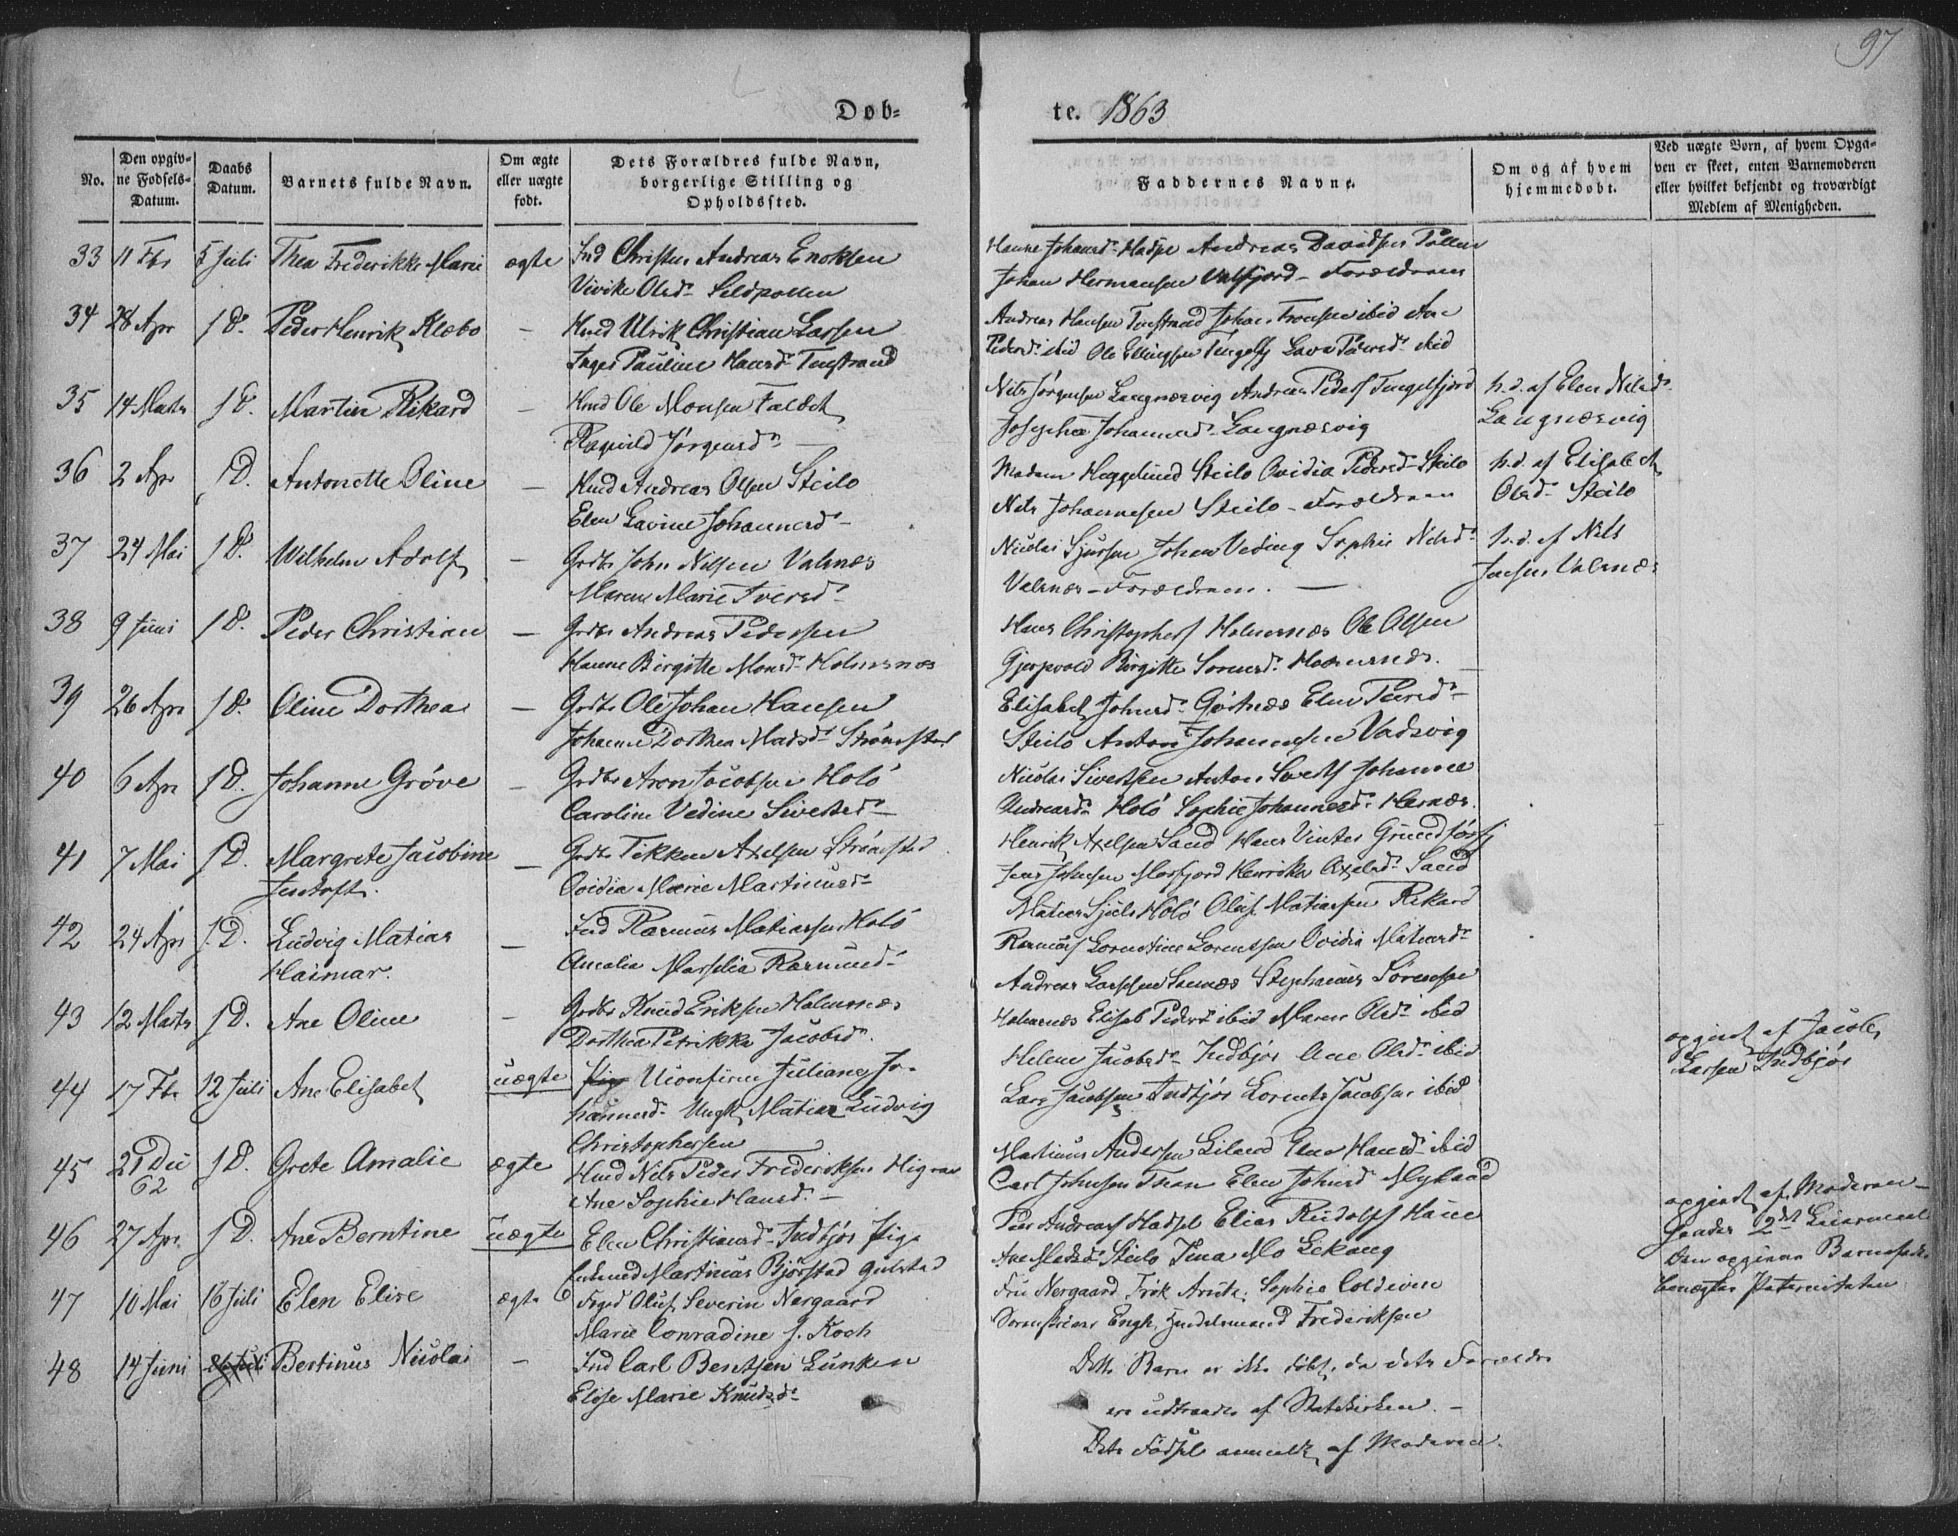 97
Døb-
te. 1863
No.
Den opgiv-
ne Fødsels-
Datum.
Daabs
Datum.
Barnets fulde Navn.
Om ægte
eller uægte
født.
Dets Forældres fulde Navn,
borgerlige Stilling og
Opholdssted.
Faddernes Navne.
Om og af hvem
hjemmedøbt.
Ved uægte Børn, af hvem Opga-
ven er skeet, enten Barnemoderen
eller hvilket bekjendt og troværdigt
Medlem af Menigheden.
33 11 Fbr 5 Juli Thea Frederikke Marie ægte Ind Christen Andreas Enoksen
Vivike Olsd. Seldpollen
Hanne Johansd. Hadsel Andreas Davidsen Pollen
Johan Hermansen Valfjord - Forældrene
34 28 Apr 1 D. Peder Henrik Klæbo - Hmd Ulrik Christian Larsen
Inger Pauline Hansd. Tenstrand
Andreas Hansen Tenstrand Johan ibid Ane
Pedersd. ibid Ole Ellingsen Lava Pedersd. ibid
35 14 Marts 1 D. Martin Rikard - Hmd Ole Monsen Faldet
Ragnild Jørgensd. -
Nils Jørgensen Langnæsvig Andreas Peders Tengelfjord
Josephea Johannesd. Langnæsvig
h.d. af Elen Nilsd.
Langnæsvig
36 2 Apr 1 D. Antonette Oline - Hmd Andreas Olsen Steilo
Elen Lavine Johannesd. -
Madam Heggelund Steilo Ovidia Pedersd. Steilo
Nils Johannesen Steilo - Forældrene
h.d. af Elisabet
Olsd. Steilo
37 24 Mai 1 D. Wilhelm Adolf - Grdbr John Nilsen Valnæs
Maren Marie Iversd. -
Nicolai Sjursen Johan Veding Sophie Nilsd.
Valnæs - Forældrene. -
h.d. af Nils
Jensen Valsnæs
38 9 Juni 1 D. Peder Christian - Grdbr Andreas Pedersen
Hanne Birgitte Monsd. Holmsnæs
Hans Christophers Holmsnæs Ole Olsen
Birgitte Sorensd. Holmsnæs. -
39 26 Apr 1 D. Oline Dorthea - Grdbr Ole Johan Hansen
Johanne Dorthea Madsd. Strømsted
Elisabet Johnsd. Elen Peersd. -
Steilo Anton Johannesen Vadsvig
40 6 Apr 1 D. Johanne Grøve - Grdbr Aron Jacobsen Holø
Caroline Vedine Sivertsd. -
Nicolai Sivertsen Anton Sverts Johanne
Andreasd. Holø Sophie Johannesd. Hernæs.
41 7 Mai 1 D. Margrete Jacobine
Jentoft.
- Grdbr Tikken Axelsen Strømsted
Ovidia Marie Martinusd.
Henrik Axelsen Sand Hans Vinter
Jens Johnsen Morfjord Henrikka Axelsd. Sand
42 24 Apr 1 D. Ludvig Matias
Haimar.
- Ind Rasmus Matiassen Holø
Amalia Marselia Rasmusd.
Matias Sjuls Holø Oluf Matiassen Rikard
Rasmus Lorentine Lorentsen Ovidia Matiasd.
43 12 Marts 1 D. Ane Oline - Grdbr Knud Eriksen Holmsnæs
Dorthea Petrikke Jacobsd.
Andreas Larssen Stephanus Sørensen
Holmsnæs Elisab Pedersd. ibid Maren Olsd. ibid
44 17 Fbr 12 Juli Ane Elisabet uægte Pige Ukonfirm Juliane Jo-
hannesd. Ungk. Matias Ludvig
Christophersen
Helene Jacobsd. Indbjør Ane Olsd. ibid
Lars Jacobsen Indbjør Lorents Jacobsen ibid
opgivet af Jacob
Larsen Indbjør
45 21 Dec
62
1 D. Grete Amalie ægte Hmd Nils Peder Frederiksen
Ane Sophie Hansd. -
Martinus Andersen Eiland Elen Hansd. ibid
Carl Johnsen Elen Johnsd. Myhland
46 27 Apr. 1 D. Ane Berntine uægte Elen Christiansd. Indbjør Pige
Martinus Bjørstad Gulstad
Peer Andreas Hadsel Elias Rudolf Haue
Ane Madsd. Steilo Tina Mo Lekang
opgivet af Moderen -
hendes 2det Leiermaal
Den opgivne Barnefader
benægter Paterniteten
47 10 Mai 16 Juli Elen Elise ægte Foged Oluf Severin Nergaard
Marie Conradine f. Koch
Fru Nergaard Frøk Sophie Coldevin
Engh Handelsmand Frederiksen
48 14 Juni Bertinus Nicolai - Ind Carl Bentsen Lunken
Elise Marie Knudsd.
Dette Barn er ikke døbt, da dets Forældre
ere udtraadte af Statskirken. -
Dets Fødsel anmeldt af Moderen.